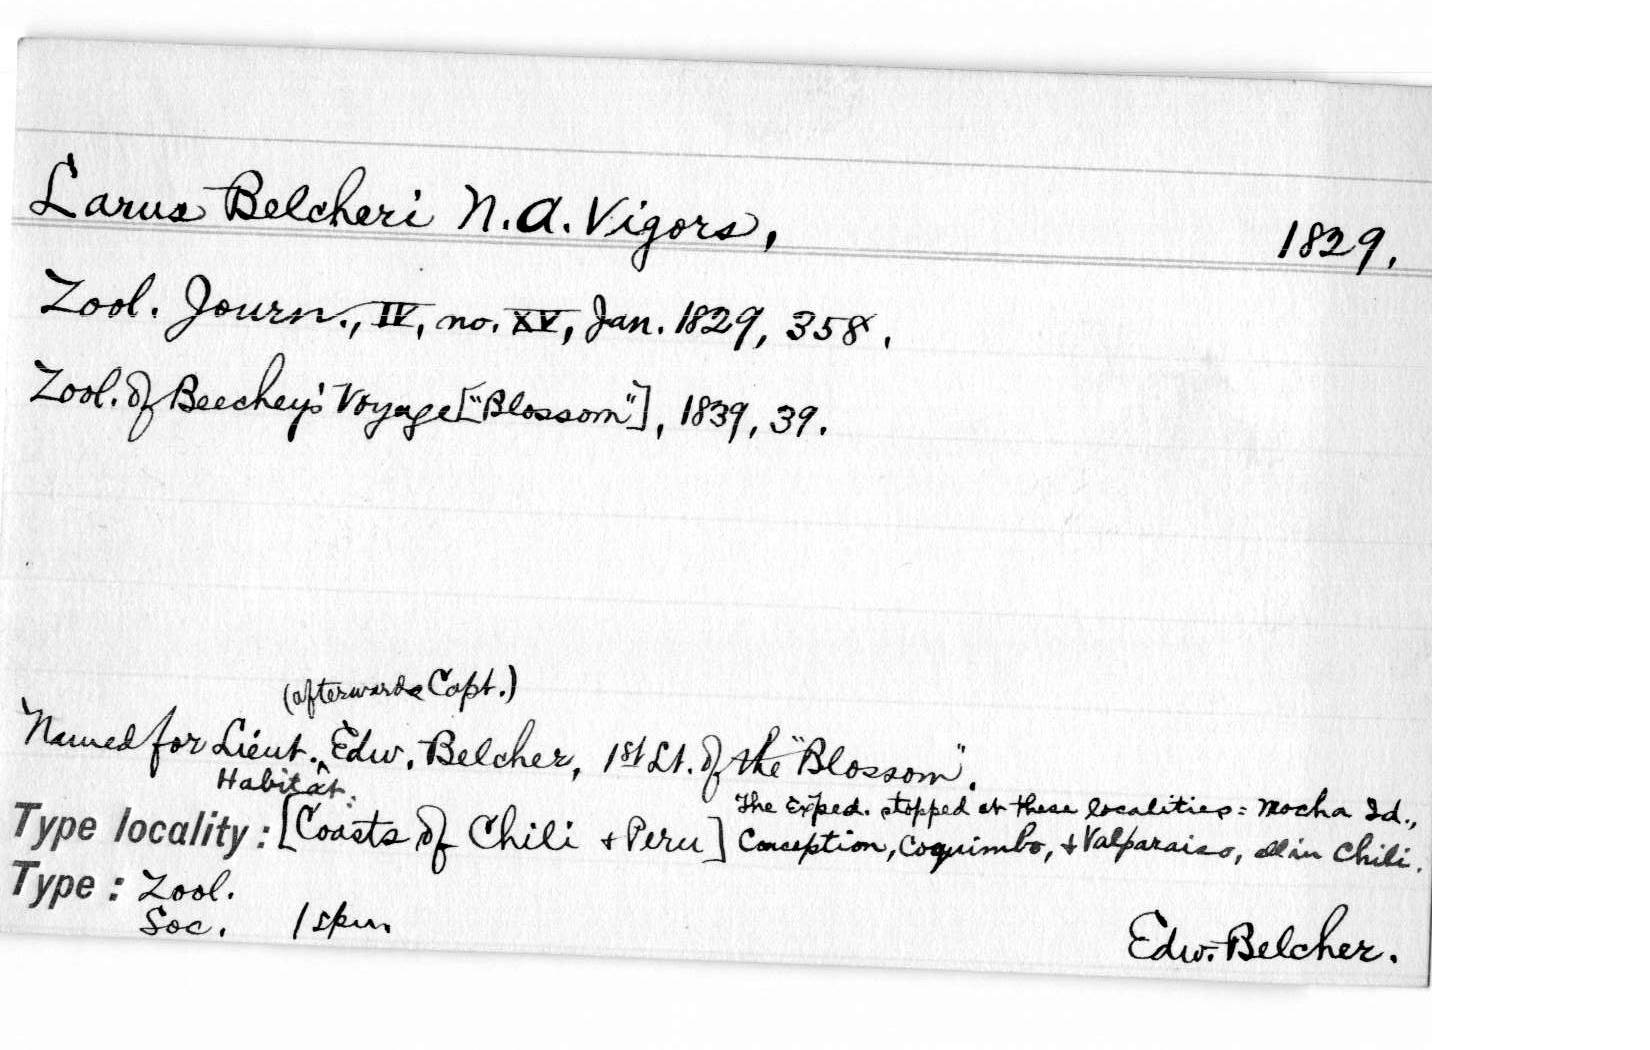 Larus Belcheri N.A. Vigors, 1829.
Zool. Journ., IV, no. XV, Jan. 1829, 358.
Zool. of Beechey's Voyage ["Blossom"], 1839, 39.
(afterwards Capt.)
Named for Lieut. ^ Edw. Belcher, 1st Lt. of the "Blossom".
Habitat:
Type locality: [Coasts of Chili + Peru] The Exped. stopped at these localities: Mocha Id.,
Conception, Coquimbo, + Valparaiso, all in Chili.
Type: Zool.
Soc. 1 spm
Edw. Belcher.